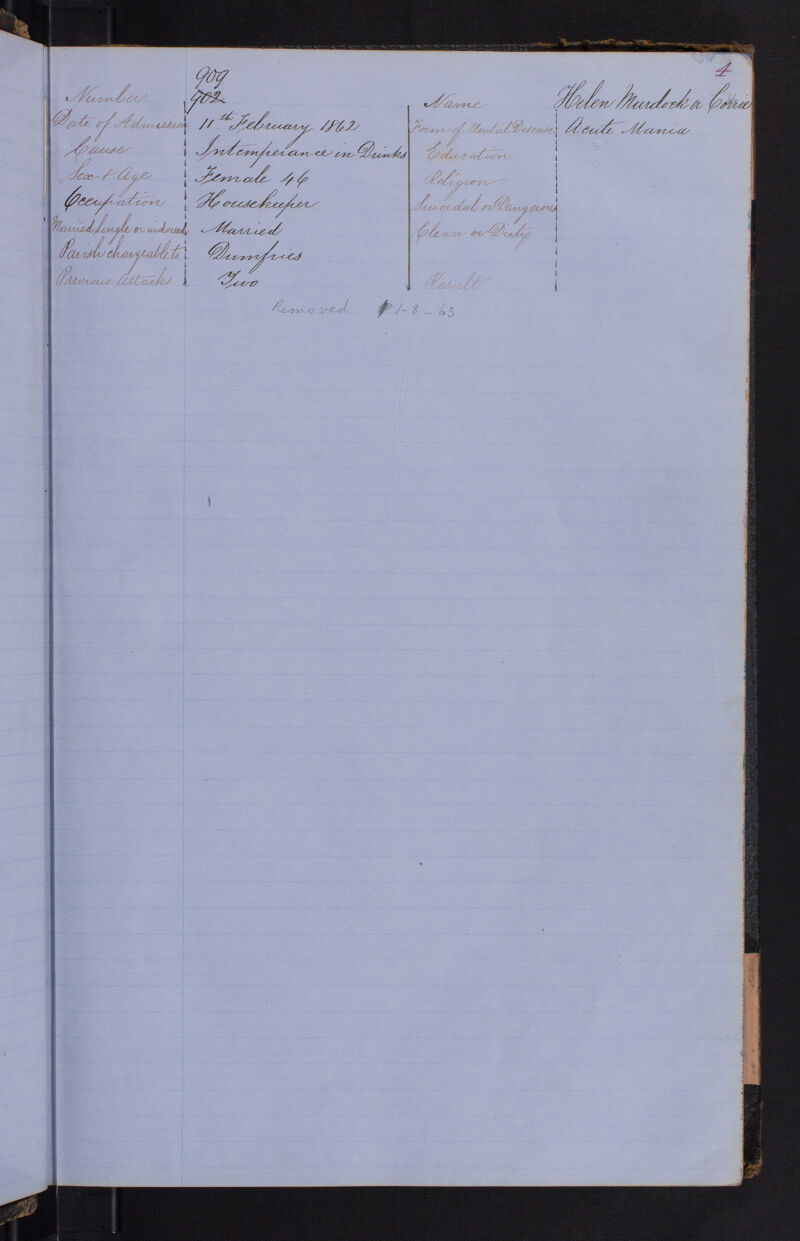 4
909
Number 902 Name Helen Murdock or Corrie
Date of Admission 11th February 1862 Form of Mental Disease Acute Mania
Cause Intemperance in Drinks Education
Sex & Age Female 46 Religion
Occupation Housekeeper Suicidal or Dangerous
Married Single or widowed Married Clean or Dirty
Parish chargeable to Dumfries
Previous Attacks Two Result
Removed 1-8-63